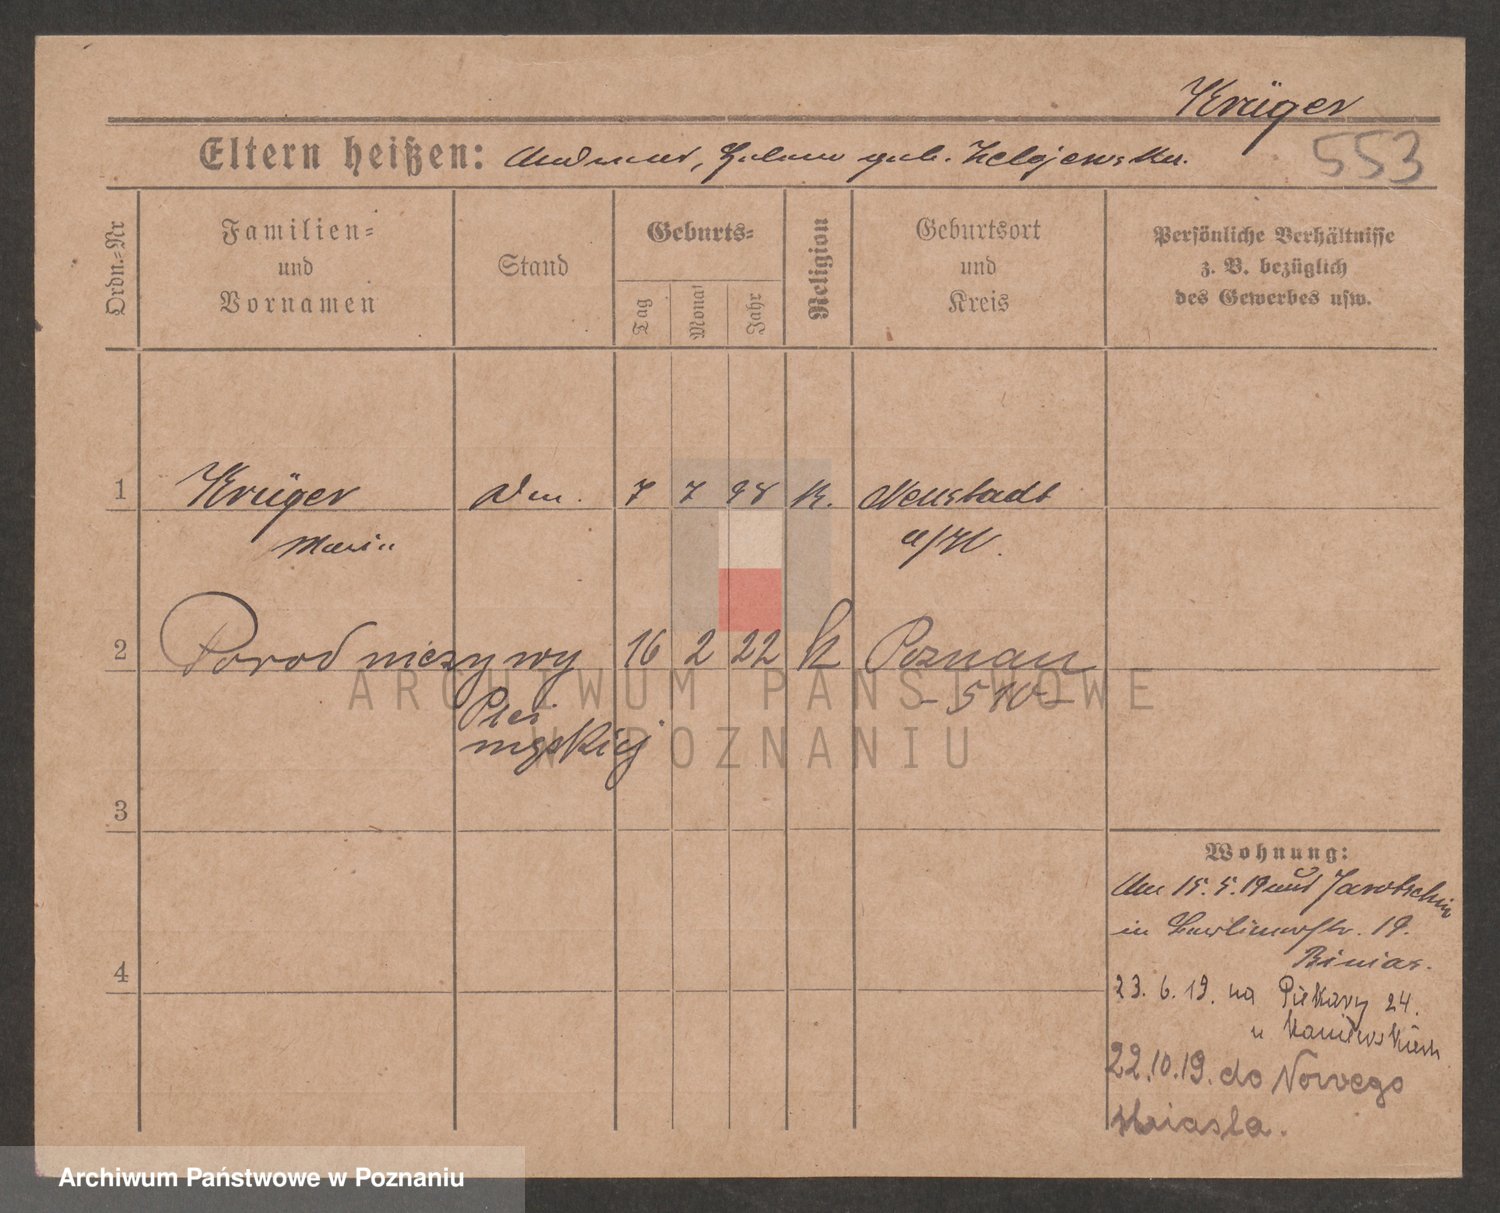 Krüger
553
Eltern heißen: Andreas, geb.
Ordn.-Nr
Familien- und Vornamen
Stand
Geburts-
Tag
Monat
Jahr
Religion
Geburtsort und Kreis
Persönliche Verhältnisse
z. B. bezüglich
des Gewerbes usw.
1 Krüger 7 7 98 K. Neustadt
Maria a/W.
2 Poród nieżywy 16 2 22 k Poznan
- 510 -
3
4
Wohnung:
Am 15.5.19 aus Jarotschin
in Berlinerstr. 19.
23.6.19. na Piekary 24.
u
22.10.19. do Nowego
Miasta.
ARCHIWUM PAŃSTWOWE
W POZNANIU
Archiwum Państwowe w Poznaniu